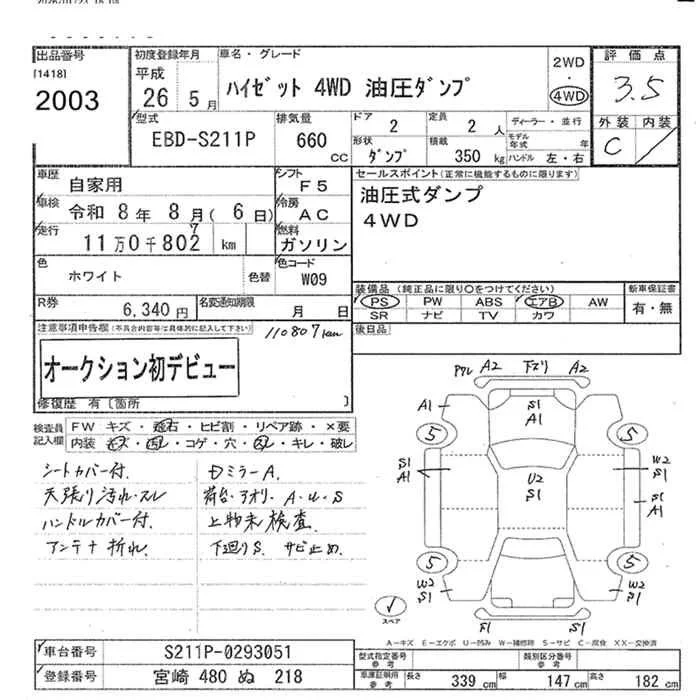 出品番号 初度登録年月 車名・グレード 2WD 評価点
[1418] 平成 ・
2003 26 5月 ハイゼット 4WD 油圧ダンプ 4WD 3.5
型式 排気量 ドア 2 定員 2人 ディーラー・並行 外装 内装
EBD-S211P 660cc モデル年式 年 C
形状 ダンプ 積載 350kg ハンドル 左・右
車歴 自家用 シフト F5 セールスポイント(正常に機能するものに限ります)
車検 令和 8年 8月(6日) 冷房 AC 油圧式ダンプ
走行 11万0千802km 7 燃料 ガソリン 4WD
色 ホワイト 色替 色コード W09
装備品(純正品に限り○をつけてください) 新車保証書
R券 6,340円 名変通知期限 月 日 PS PW ABS エアB AW 有・無
SR ナビ TV カワ
注意事項申告欄(不具合内容等は具体的に記入して下さい) 110807km 後日品
オークション初デビュー
修復歴 有[箇所 ]
検査員記入欄 FW キズ・飛石・ヒビ割・リペア跡・×要
内装 キズ・汚レ・コゲ・穴・スレ・キレ・破レ
シートカバー付. DミラーA.
天張り汚れ・スレ 荷台・アオリ A・U・S
ハンドルカバー付. 上物未検査.
アンテナ折れ. 下廻りS. サビ止め.
A2 下ズリ A2
A1 S1 A1
5 5
S1 A1 U2 S1 W2 S1
S1 A1
5 5
W2 S1 W2 S1
スペア S1 S1
A-キズ E-エクボ U-凹み W-補修跡 S-サビ C-腐食 XX-交換済
車台番号 S211P-0293051 型式指定番号 参考 類別区分番号 参考
登録番号 宮崎 480 ぬ 218 車庫証明用 参考 長さ 339cm 幅 147cm 高さ 182cm